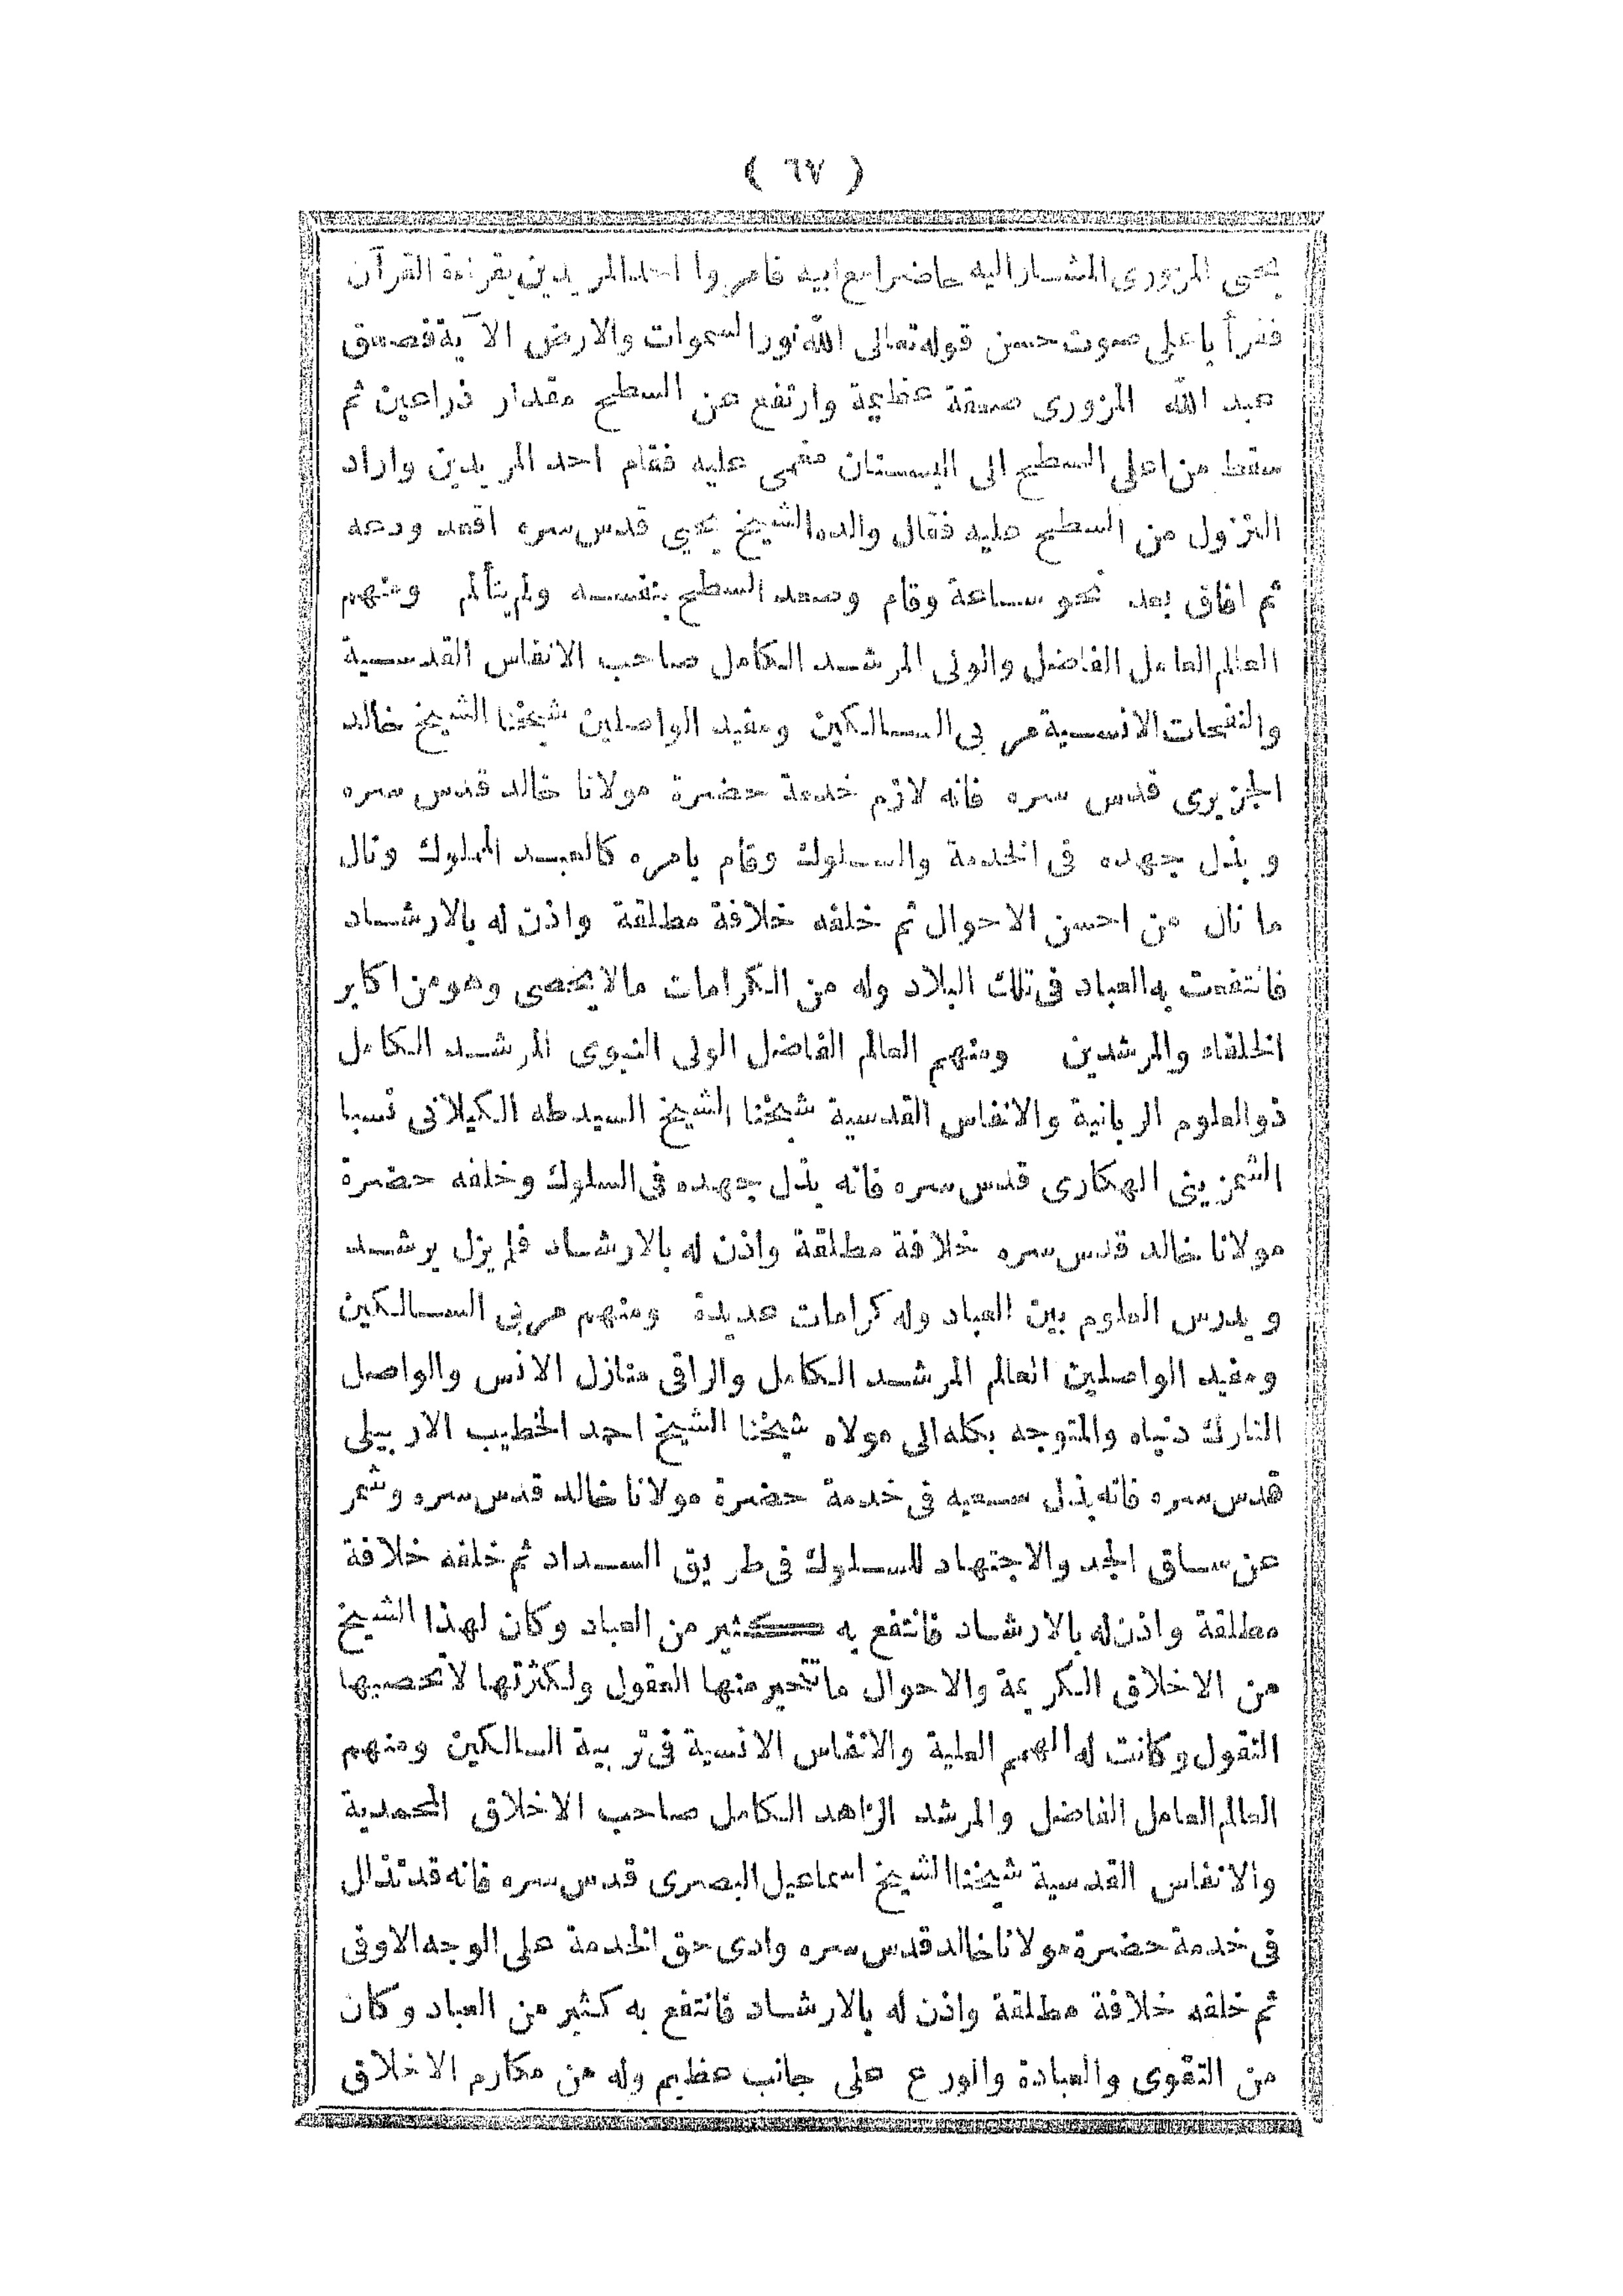 ( ٦٧ )
يحيى المزورى المشار اليه حاضرا مع ابيه فامروا احد المريدين بقراءة القرآن
فقرأ باعلى صوت حسن قوله تعالى الله نور السموات والارض الآية فصعق
عبد الله المزورى صعقة عظيمة وارتفع عن السطح مقدار ذراعين ثم
سقط من اعلى السطح الى البستان مغمى عليه فقام احد المريدين واراد
النزول من السطح عليه فقال والده الشيخ يحيي قدس سره اقعد ودعه
ثم افاق بعد نحو ساعة وقام وصعد السطح بنفسه ولم يتألم ومنهم
العالم العامل الفاضل والولى المرشد الكامل صاحب الانفاس القدسية
والنفحات الانسية مربى السالكين ومفيد الواصلين شيخنا الشيخ خالد
الجزيرى قدس سره فانه لازم خدمة حضرة مولانا خالد قدس سره
وبذل جهده فى الخدمة والسلوك وقام بامره كالعبد المملوك ونال
ما نال من احسن الاحوال ثم خلفه خلافة مطلقة واذن له بالارشاد
فانتفعت به العباد فى تلك البلاد وله من الكرامات مالا يحصى وهو من اكابر
الخلفاء والمرشدين ومنهم العالم الفاضل الولى النبوى المرشد الكامل
ذو العلوم الربانية والانفاس القدسية شيخنا الشيخ السيد طه الكيلانى نسبا
الشمزينى الهكارى قدس سره فانه بذل جهده فى السلوك وخلفه حضرة
مولانا خالد قدس سره خلافة مطلقة واذن له بالارشاد فلم يزل يرشد
ويدرس العلوم بين العباد وله كرامات عديدة ومنهم مربى السالكين
ومفيد الواصلين العالم المرشد الكامل والراقى منازل الانس والواصل
التارك دنياه والمتوجه بكله الى مولاه شيخنا الشيخ احمد الخطيب الاربيلى
قدس سره فانه بذل سعيه فى خدمة حضرة مولانا خالد قدس سره وشمر
عن ساق الجد والاجتهاد للسلوك فى طريق السداد ثم خلفه خلافة
مطلقة واذن له بالارشاد فانتفع به كثير من العباد وكان لهذا الشيخ
من الاخلاق الكريمة والاحوال ما تتحير منها العقول ولكثرتها لا تحصيها
النقول وكانت له الهمم العلية والانفاس الانسية فى تربية السالكين ومنهم
العالم العامل الفاضل والمرشد الزاهد الكامل صاحب الاخلاق المحمدية
والانفاس القدسية شيخنا الشيخ اسماعيل البصرى قدس سره فانه قد تذلل
فى خدمة حضرة مولانا خالد قدس سره وادى حق الخدمة على الوجه الاوفى
ثم خلفه خلافة مطلقة واذن له بالارشاد فانتفع به كثير من العباد وكان
من التقوى والعبادة والورع على جانب عظيم وله من مكارم الاخلاق